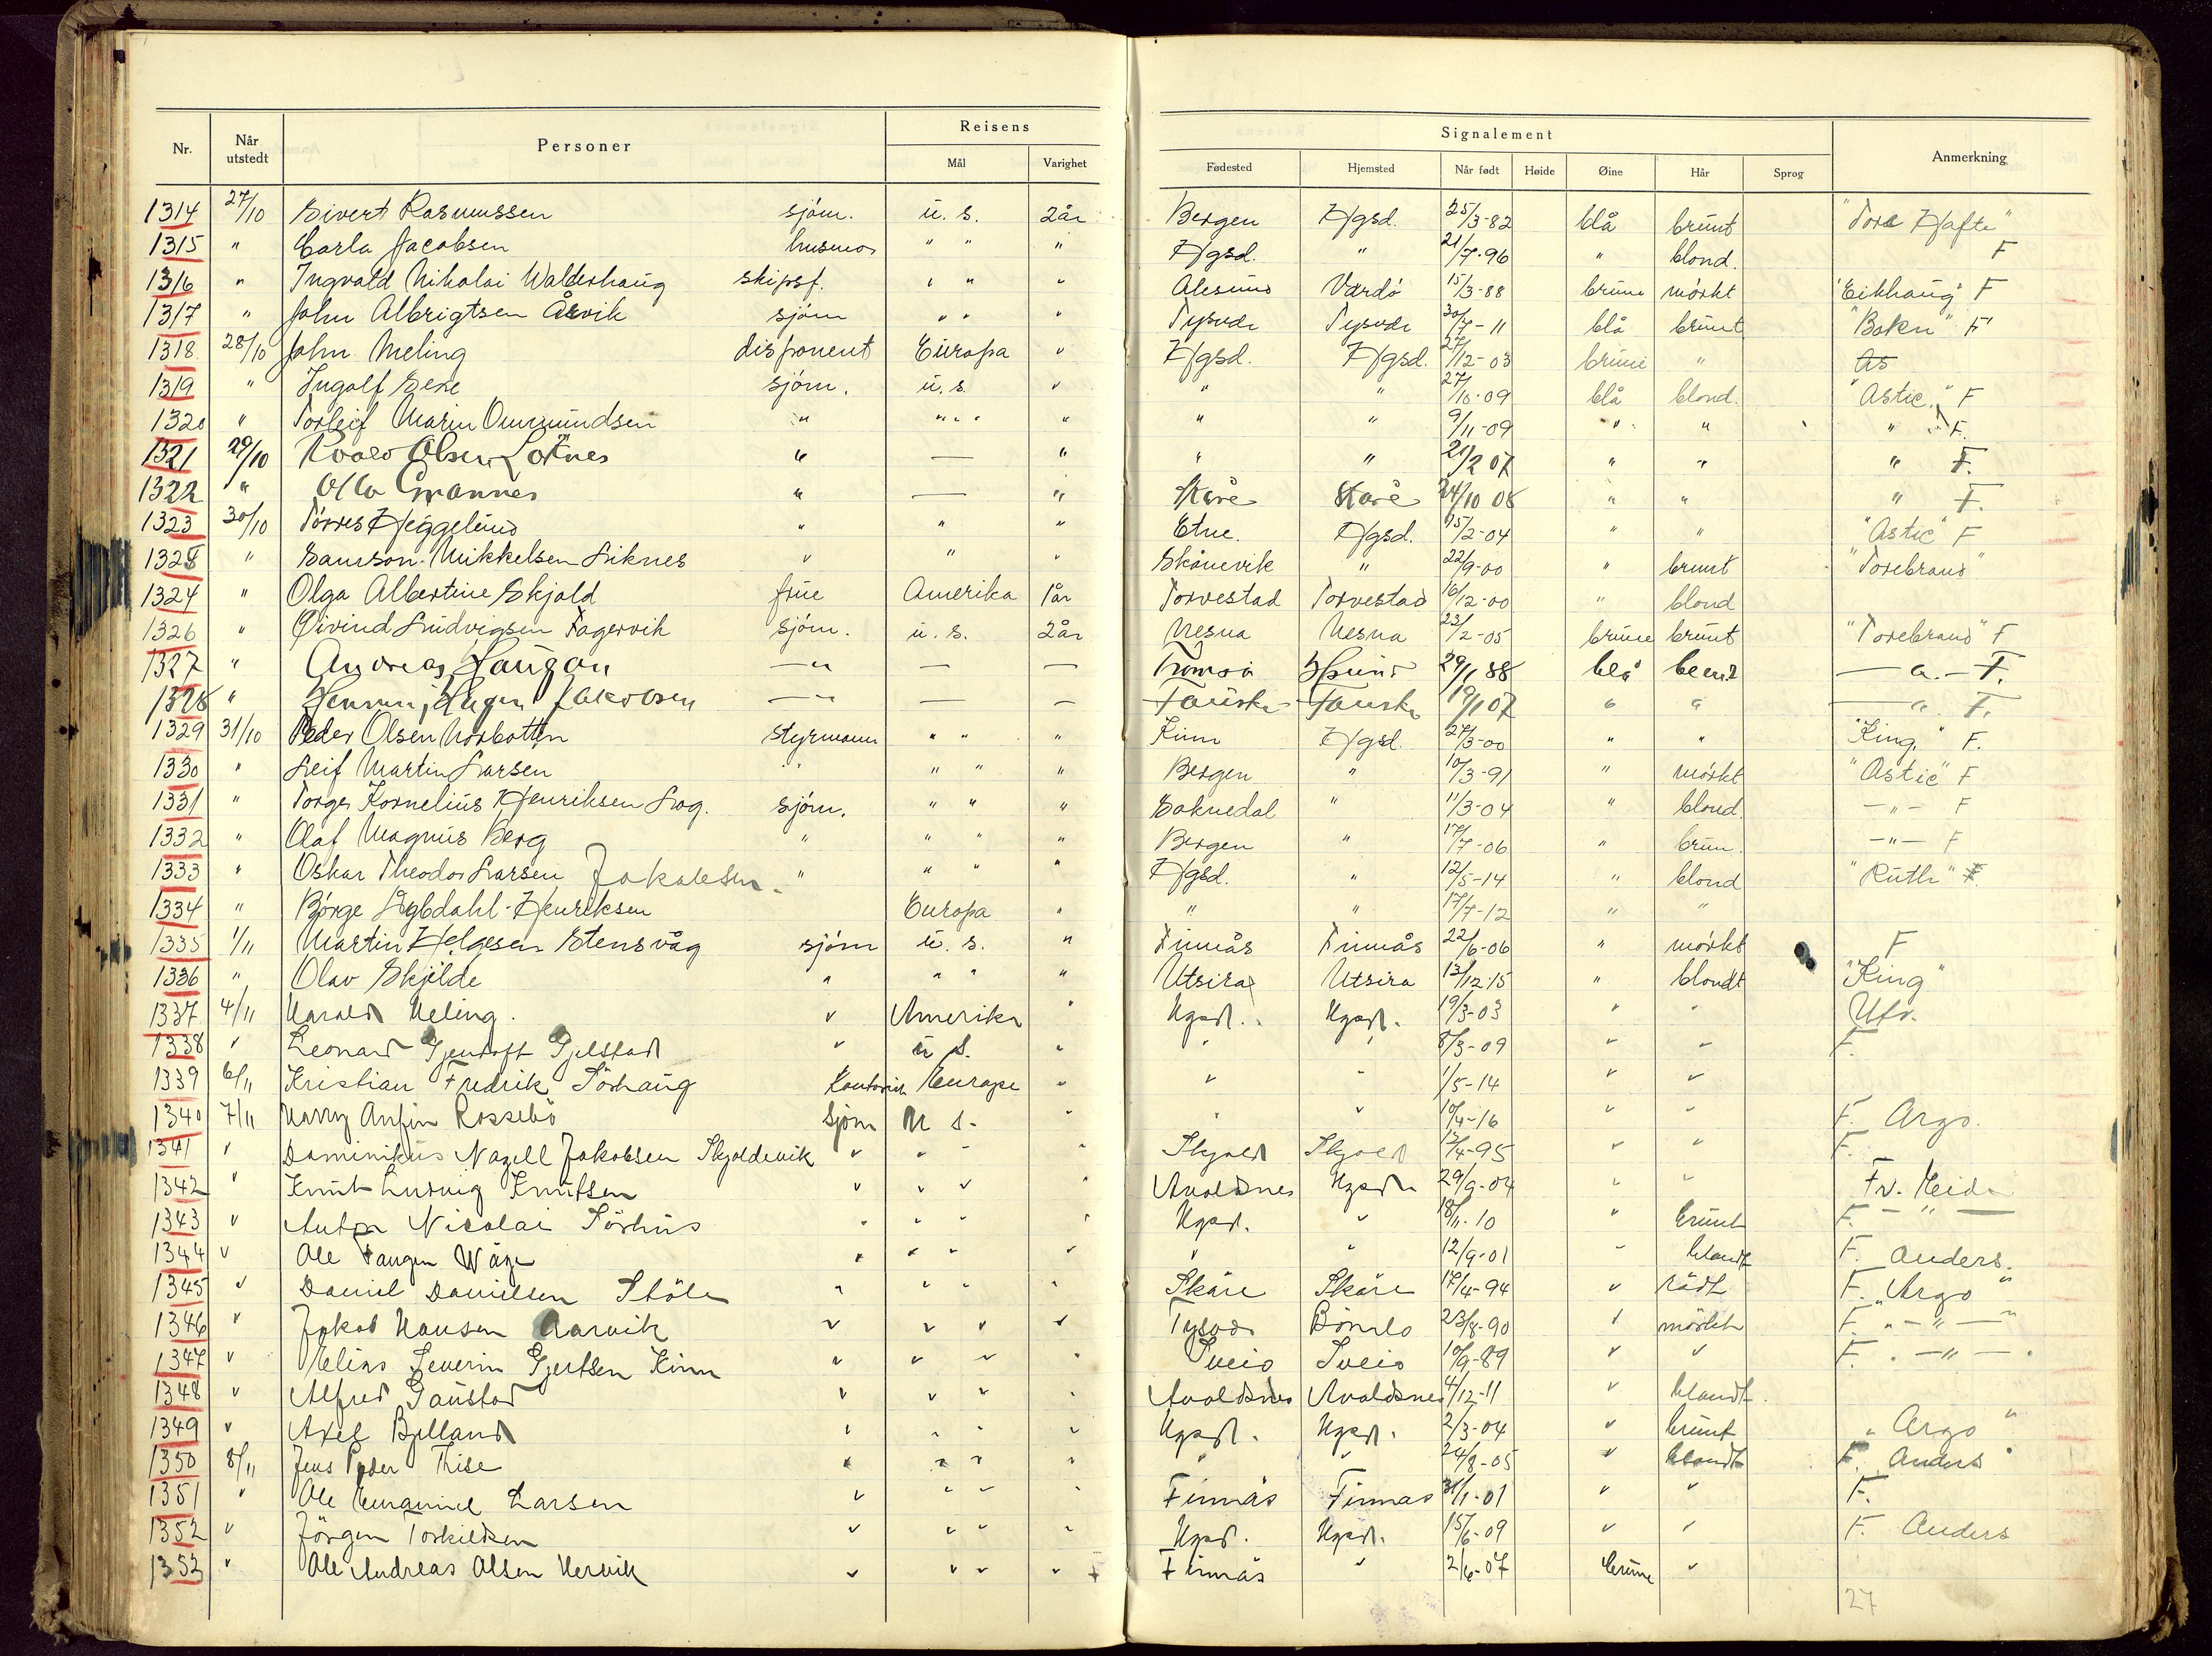 Nr. Når utstedt Personer Reisens Mål Varighet Signalement Fødested Hjemsted Når født Høide Øine Hår Sprog Anmerkning
1314 27/10 Sivert Rasmussen sjøm. u. s. 2 år Bergen Hgsd. 25/3-82 blå brunt "Tore Hafte"
1315 " Carla Jacobsen husmor " " " Hgsd. " 21/7-96 " blond. F
1316 " Ingvald Nikolai Walderhaug skipsf. " " " Alesund Vardø 15/3-88 brune mørkt "Eikhaug" F
1317 " John Albrigtsen Årvik sjøm " " " Tysvær Tysvær 30/7-11 blå brunt "Bokn" F
1318 28/10 John Meling disponent Europa " Hgsd. Hgsd. 27/12-03 brune " As
1319 " Ingolf sjøm. u. s. " " " 27/10-09 blå blond. "Astic" F
1320 " Torleif Marin Ommundsen " " " " " " 9/11-09 " " " F.
1321 29/10 Roald Olsen " — " " " 21/2 07 " " " F.
1322 " Grannes " — " Skåre Skåre 24/10 08 " " " F.
1323 30/10 Tørres Heggelund " " " Etne. Hgsd. 15/2-04 " " "Astic" F
1325 " Samson Mikkelsen Liknes " " " Skånevik " 22/9-00 " brunt "Torebrand"
1324 " Olga Albertine Skjold frue Amerika 1 år Torvestad Torvestad 16/12-00 " blond
1326 " Øivind Ludvigsen Fagervik sjøm. u. s. 2 år Nesna Nesna 22/2-05 brune brunt "Torebrand" F
1327 " Andreas Haugan — " — — Tromsø 29/1 88 blå — " — F.
1328 " Henning Hagen Jakobsen — " — — Fauske Fauske 19/1 07 " " — " F.
1329 31/10 Peder Olsen Norbotten styrmann " " " Kinn Hgsd. 27/3-00 " " "King" F.
1330 " Leif Martin Larsen " " " " Bergen " 10/3-91 " mørkt "Astic" F
1331 " Torger Kornelius Henriksen Log. sjøm. " " " Soknedal " 11/3-04 " blond. — " — F
1332 " Olaf Magnus Berg " " " " Bergen " 17/7-06 " brun. — " — F
1333 " Oskar Theodor Larsen Jakobsen. " " " " Hgsd. " 12/5-14 " blond "Ruth" F.
1334 " Børge Sybdahl-Henriksen Europa " " " 17/7-12 " "
1335 1/11 Martin Helgesen Stensvåg sjøm u. s. " Finnås Finnås 22/6-06 " mørkt F
1336 " Olav Skjelde " " " " Utsira Utsira 13/12-15 " blondt "King"
1337 4/11 Harald Meling. " Amerika " Hgsd. Hgsd. 19/3-03 " " Utv.
1338 " Leonard Gjentoft Gjelstad " u s. " " " 8/3-09 " " F.
1339 6/11 Kristian Fredrik Sörhaug Kontorist Europa " " " 1/5-14 " "
1340 7/11 Harry Anfin Rossebö Sjöm U s. " " " 10/4-16 " " F. Argo.
1341 " Dominikus Nagell Jakobsen Skjoldevik " " " " Skjold Skjold 13/4-95 " " F.
1342 " Knut Ludvig Knutsen " " " " Avaldsnes Hgsd. 29/9-04 " " Fv. Heida
1343 " Anton Nicolai Sörhus " " " " Hgsd. " 18/11-10 " brunt F. — " —
1344 " Ole Tangen Våge " " " " " " 12/9-01 " blondt F. Anders.
1345 " Daniel Danielsen Stöle " " " " Skåre Skåre 17/4-94 " rödt F. "Argo"
1346 " Jakob Hansen Aarvik " " " " Tysvær Bömlo 23/8-90 " mörkt F. " — " — "
1347 " Elias Severin Gjertsen Kinn " " " " Sveio Sveio 10/9-89 " " F. " — " — "
1348 " Alfred Gaustad " " " " Avaldsnes Avaldsnes 4/12-11 " blondt.
1349 " Axel Bjelland " " " " Hgsd. Hgsd. 2/3-04 " brunt "Argo"
1350 8/11 Jens Peder Thise " " " " " " 24/8-05 " blondt F. Anders "
1351 " Ole Emanuel Larsen " " " " Finnås Finnås 31/1-01 " " F.
1352 " Jörgen Torkildsen " " " " Hgsd. Hgsd. 15/6-09 " " F. Anders
1352 " Ole Andreas Olsen Hervik " " " " Finnås " 2/6-07 brune "
27